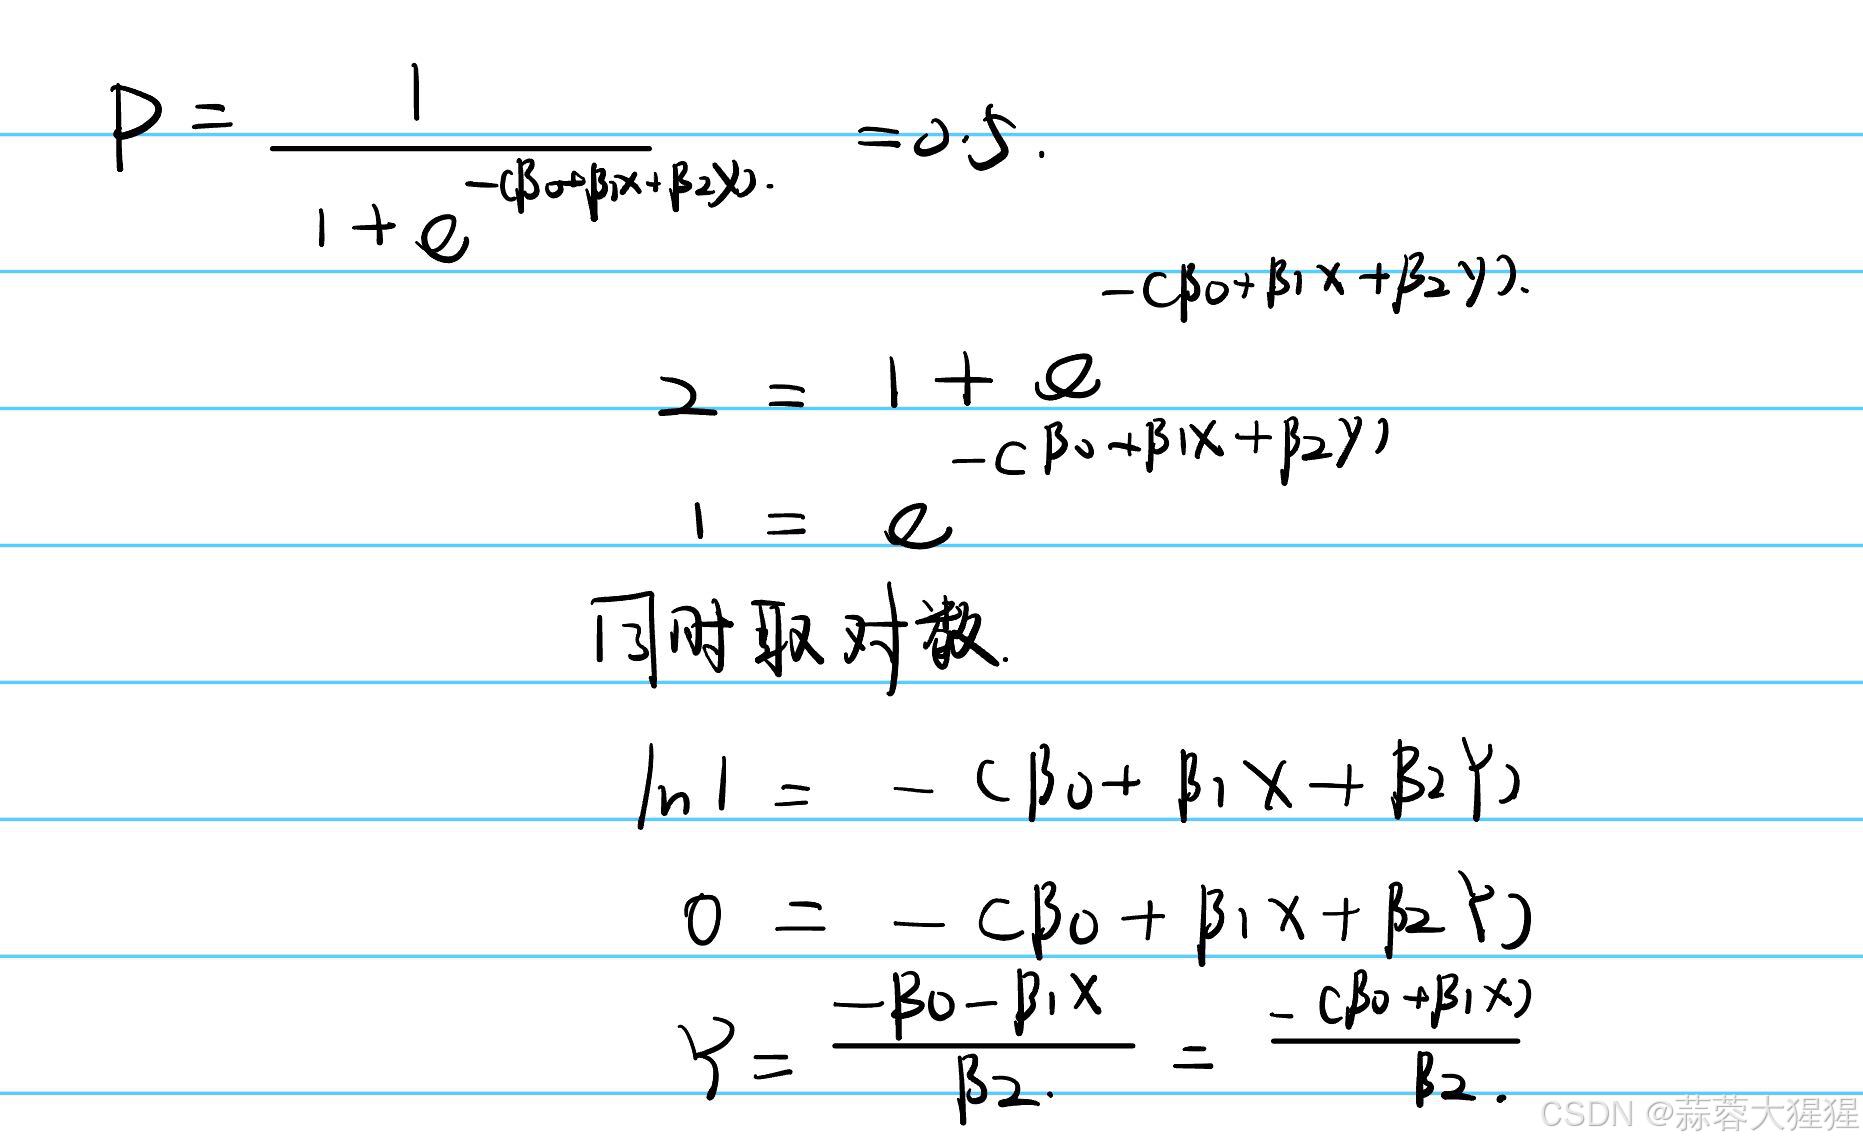 P = 1 / (1 + e^{-(β0+β1X+β2Y)}) = 0.5.
2 = 1 + e^{-(β0+β1X+β2Y)}.
1 = e^{-(β0+β1X+β2Y)}
同时取对数.
ln1 = -(β0+β1X+β2Y)
0 = -(β0+β1X+β2Y)
Y = (-β0-β1X) / β2. = -(β0+β1X) / β2.
CSDN @蒜蓉大猩猩